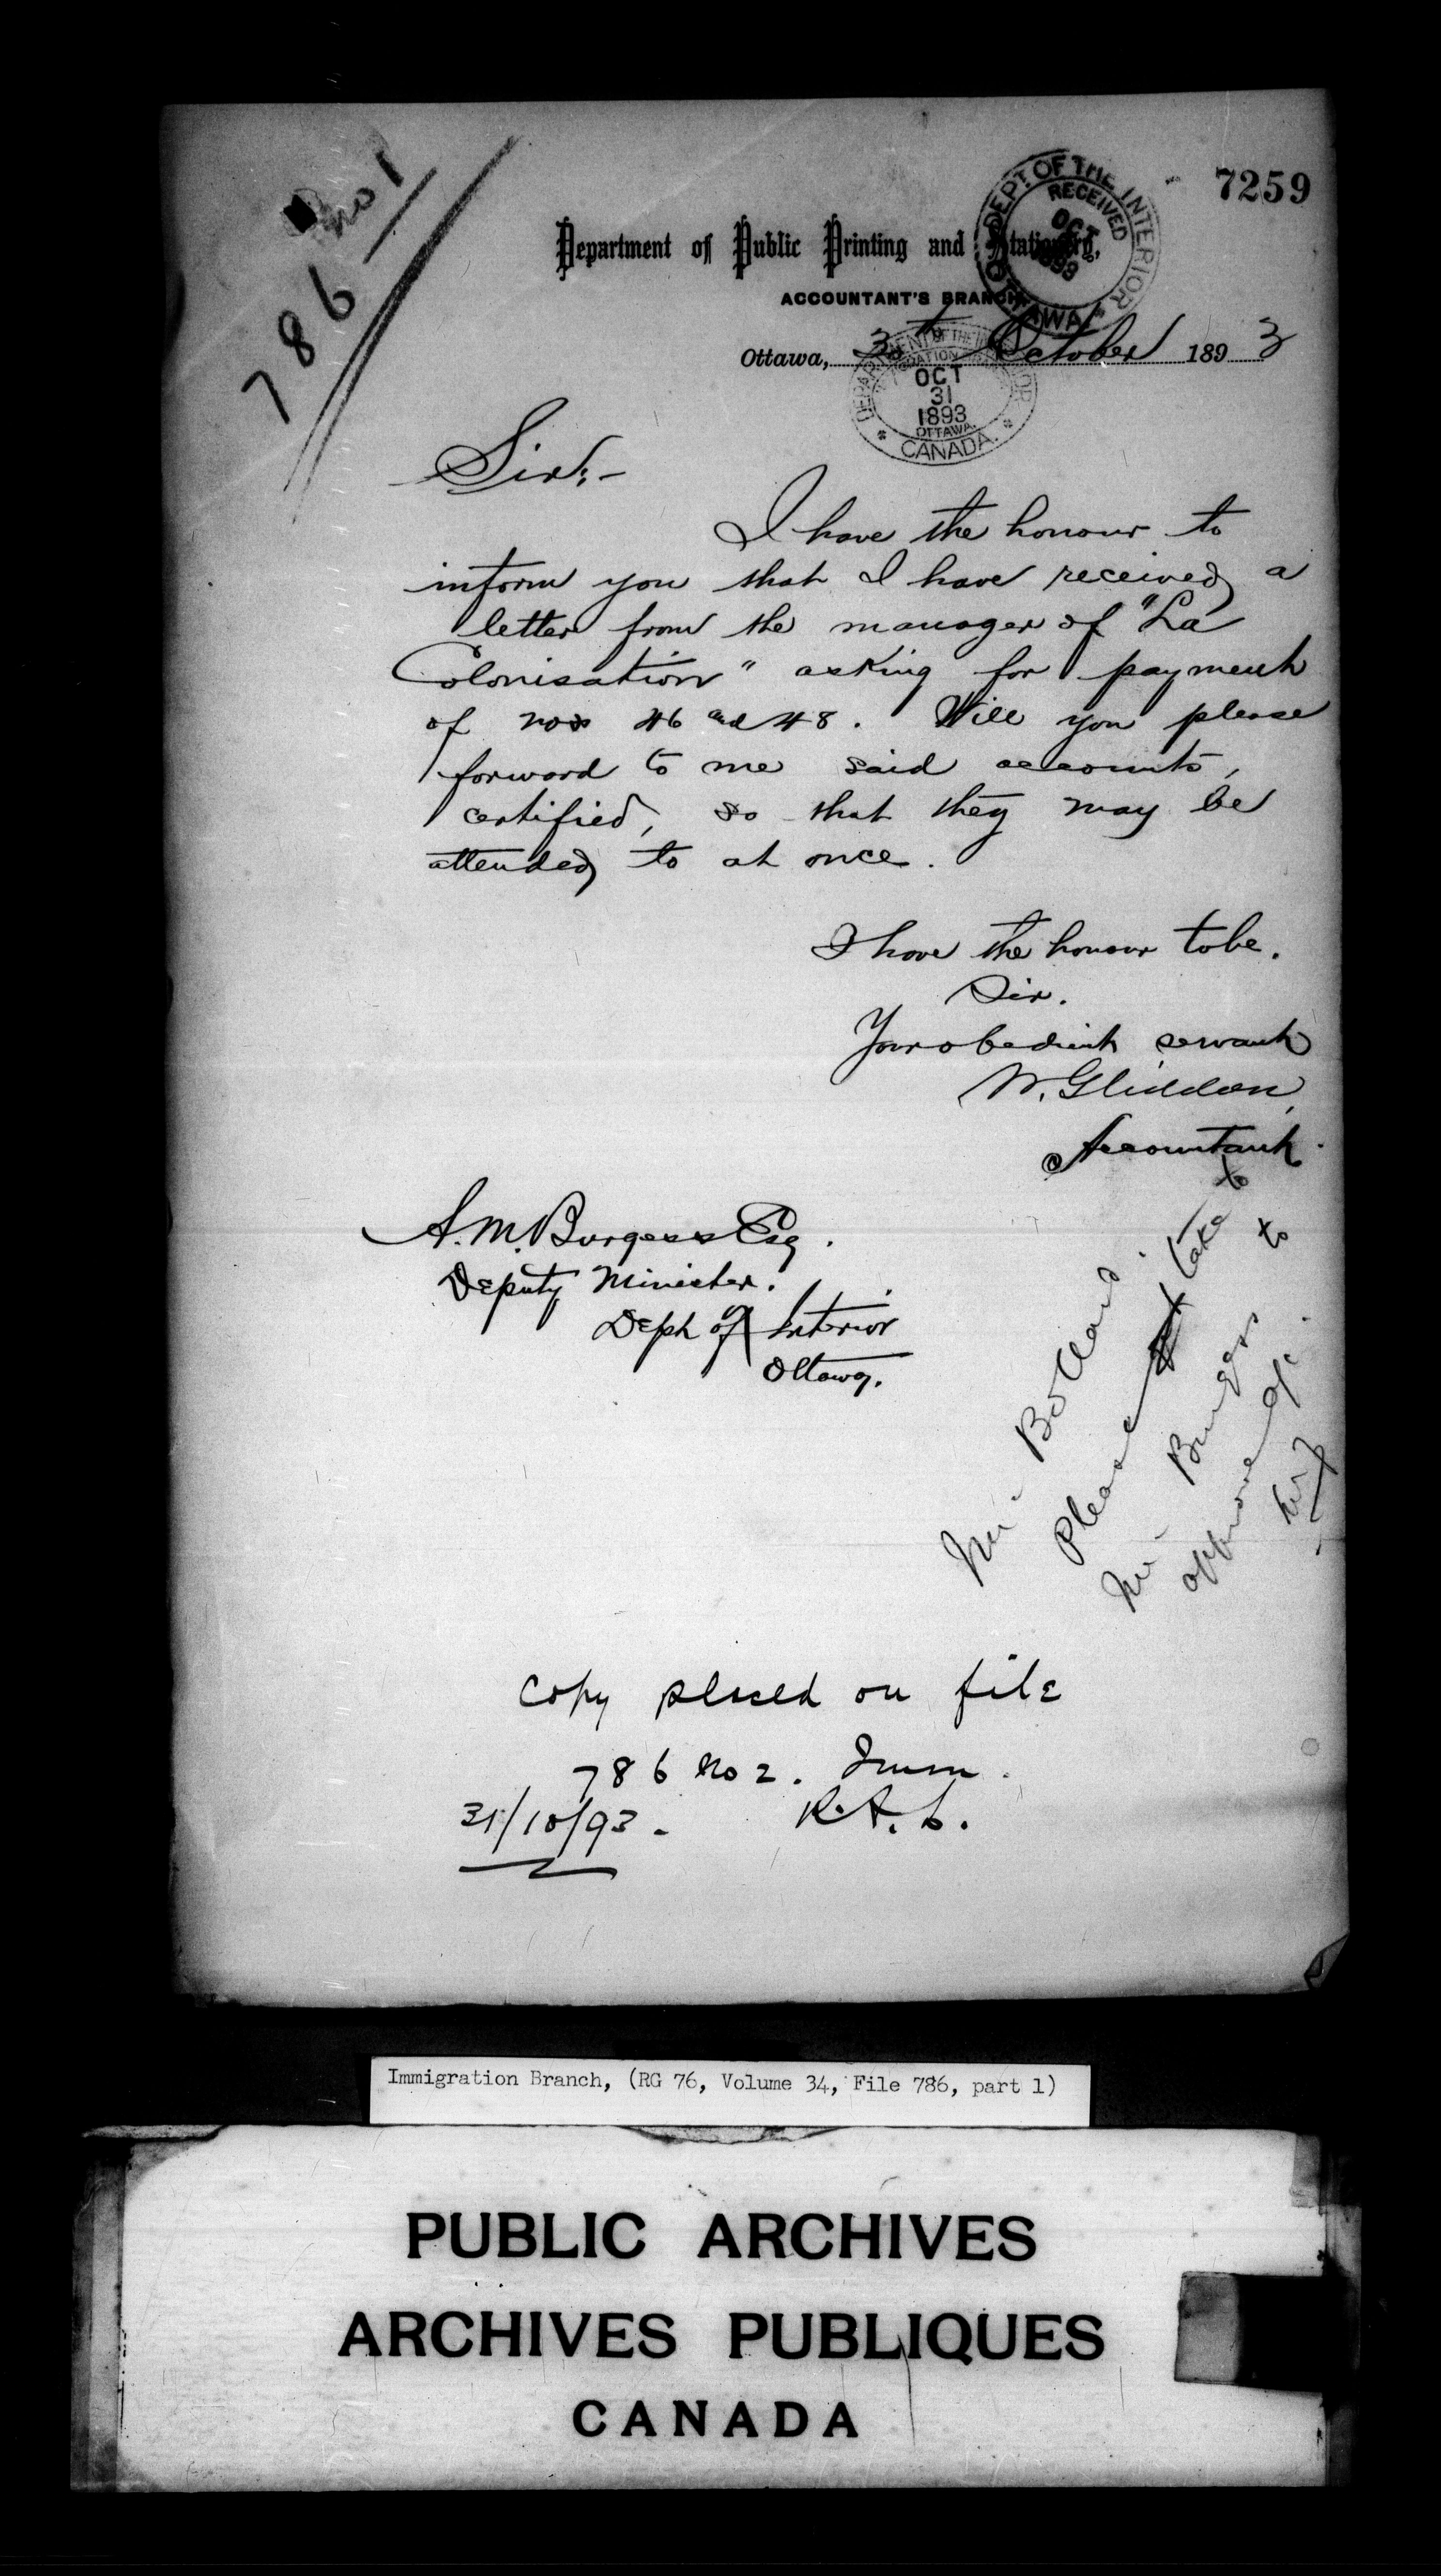 7259
786 No 1
Department of Public Printing and Stationery,
ACCOUNTANT'S BRANCH
DEPT. OF THE INTERIOR
RECEIVED
OCT
1893
OTTAWA
Ottawa, 30th October 1893
DEPARTMENT OF THE INTERIOR
OCT
31
1893
OTTAWA.
CANADA.
Sir:-
I have the honour to
inform you that I have received a
letter from the manager of "La
Colonisation" asking for payment
of nos 46 and 48. Will you please
forward to me said accounts,
certified, so that they may be
attended to at once.
I have the honour to be.
Sir.
Your obedient servant
W. Gliddon,
Accountant.
A. M. Burgess Esq.
Deputy Minister.
Dept of Interior
Ottawa.
Mr
Please take to
Mr Burgess to
approve a/c.
Copy placed on file
786 No 2. Imm.
31/10/93.
Immigration Branch, (RG 76, Volume 34, File 786, part 1)
PUBLIC ARCHIVES
ARCHIVES PUBLIQUES
CANADA